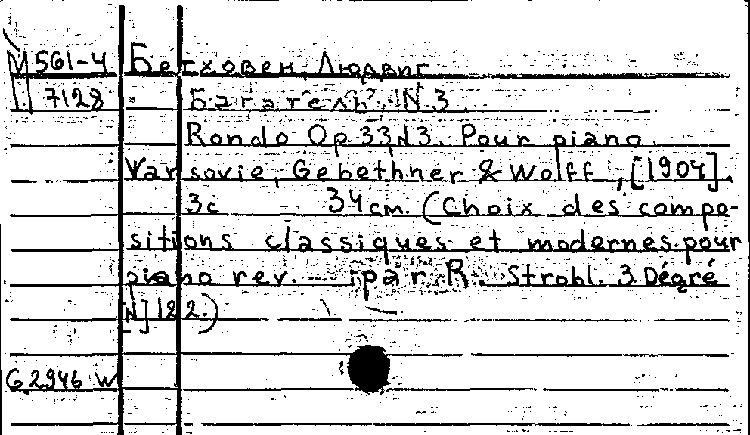 М 561-4 Бетховен, Людвиг
7128 Багатель N 3
Rondo Op 33 N 3. Pour piano
Varsovie, Gebethner & Wolff, [1904].
3с 34 см. (Choix des compo-
sitions classiques et modernes pour
piano rev. ... par R. Strobl. 3 Dégré
N] 122.)
G 2946 W